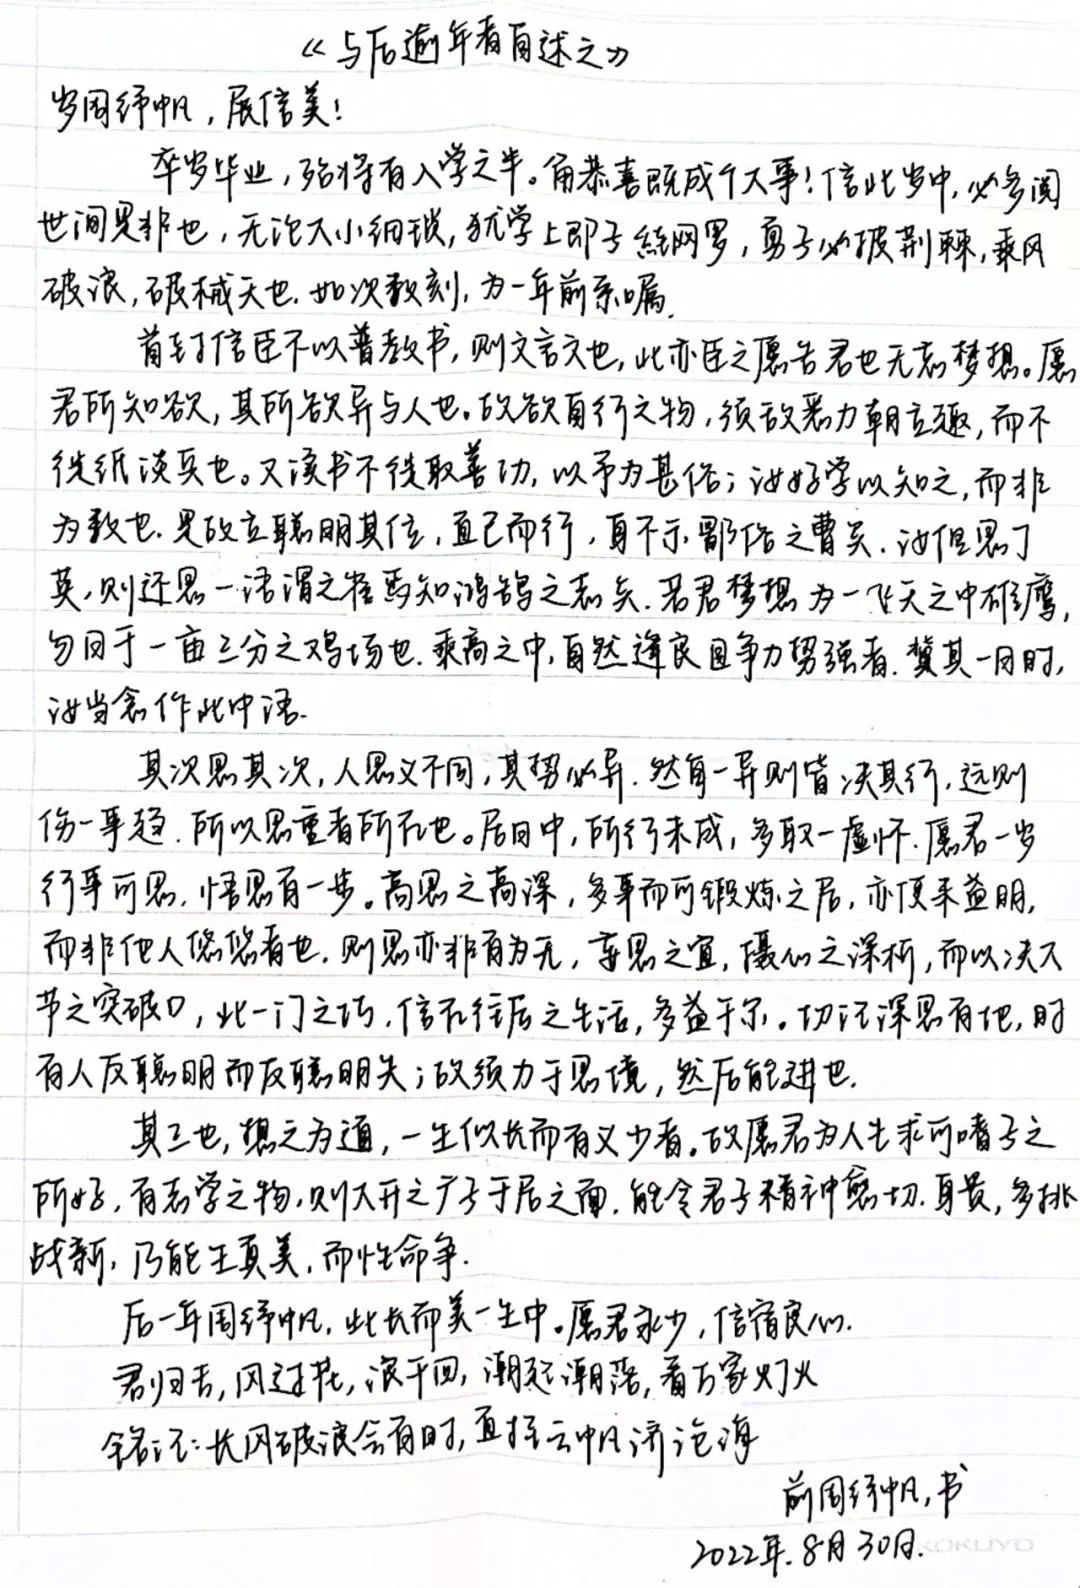 《与后逾年者自述之》
岁周纾帆，展信美！
卒岁毕业，殆将有入学之半。甬恭喜既成个大事！信此岁中，必多阅
世间是非也，无论大小细琐，犹学上即予结网罗，勇子必披荆棘，乘风
破浪，破械天也。如次数刻，为一年前亲嘱。
首封信臣不以普教书，则文言文也，此亦臣之愿告君也无志梦想。愿
君所知欲，其所欲异与人也。故欲自行之物，须敌悉力朝立趣，而不
徒纸谈兵也。又读书不徒取善功，以予为甚俗；汝好学以知之，而非
为教也。是故立聪明其位，直己而行，身不示鄙俗之曹矣。汝但思了
莫，则还思一语谓之雀焉知鸿鹄之志矣。若君梦想为一飞天之中雄鹰，
勿目于一亩三分之鸡场也。乘高之中，自然逢良因争力努强者。冀其一日时，
汝当念作此中语。
其次思其次，人思义不同，其势必异。然有一异则皆决其行，远则
伤一事趋。所以思重者所在也。居日中，所行未成，多取一虚怀。愿君一岁
行事可思，悟思有一步。高思之高深，多事而可锻炼之后，亦便来益明，
而非他人悠悠者也。则思亦非有为无，专思之宜，摄心之深析，而以决大
节之突破口，此一门之巧，信在往后之生活，多益于尔。切记深思有地，时
有人反聪明而反聪明失；故须力于思境，然后能进也。
其三也，想之为道，一生似长而有义少者。故愿君为人生求可嗜予之
所好，有志学之物，则大开之广予于居之面，能令君子精神愈切。身贵，多挑
战新，乃能王真美，而性命争。
后一年周纾帆，此长而美一生中。愿君永少，信宿良心。
君归去，风过花，浪千回，潮起潮落，看万家灯火
铭记：长风破浪会有时，直挂云帆济沧海
前周纾帆，书
2022年.8月30日.
KOKUYO